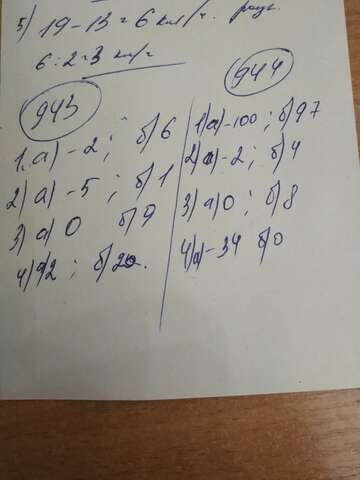 5) 19-13=6 км/ч.
6:2=3 км/ч
943
1) а) -2; б) 6
2) а) -5; б) 1
3) а) 0 б) 9
4) 92; б) 20.
944
1) а) -100; б) 97
2) а) -2; б) 4
3) а) 0; б) 8
4) а) -34 б) 0